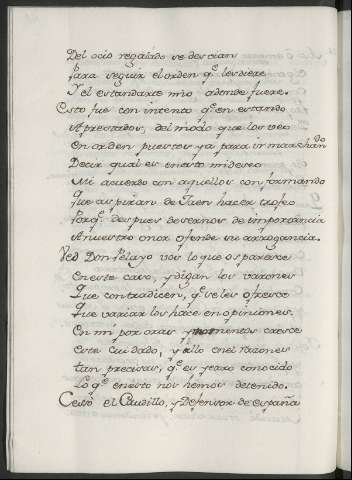 Del ocio regalado se descian
Para seguir el orden q.e les diere
Y el estandarte mio adonde fuere.
Esto fue con intento q.e en estando
Aprestados, del modo que los veo
En orden puestos ya para ir marchando
Decir qual es en esto mi deseo
Mi acuerdo con aquellos conformando
Que aspiran de Juen hacer trofeo
Porq.e despues de sernos de importancia
A nuestro onor ofende su arrogancia.
Ved Don Pelayo vos lo que os parece
En este caso, y digan los varones
Que contradicen, q.e se les ofrece
Que variar los hace en opiniones.
En mi por oras y momentos crece
Este cuidado, y allo en el razones
tan precisas, q.e es yerro conocido
Lo q.e en esto nos hemos detenido.
Cesó el Caudillo, y Defensor de España